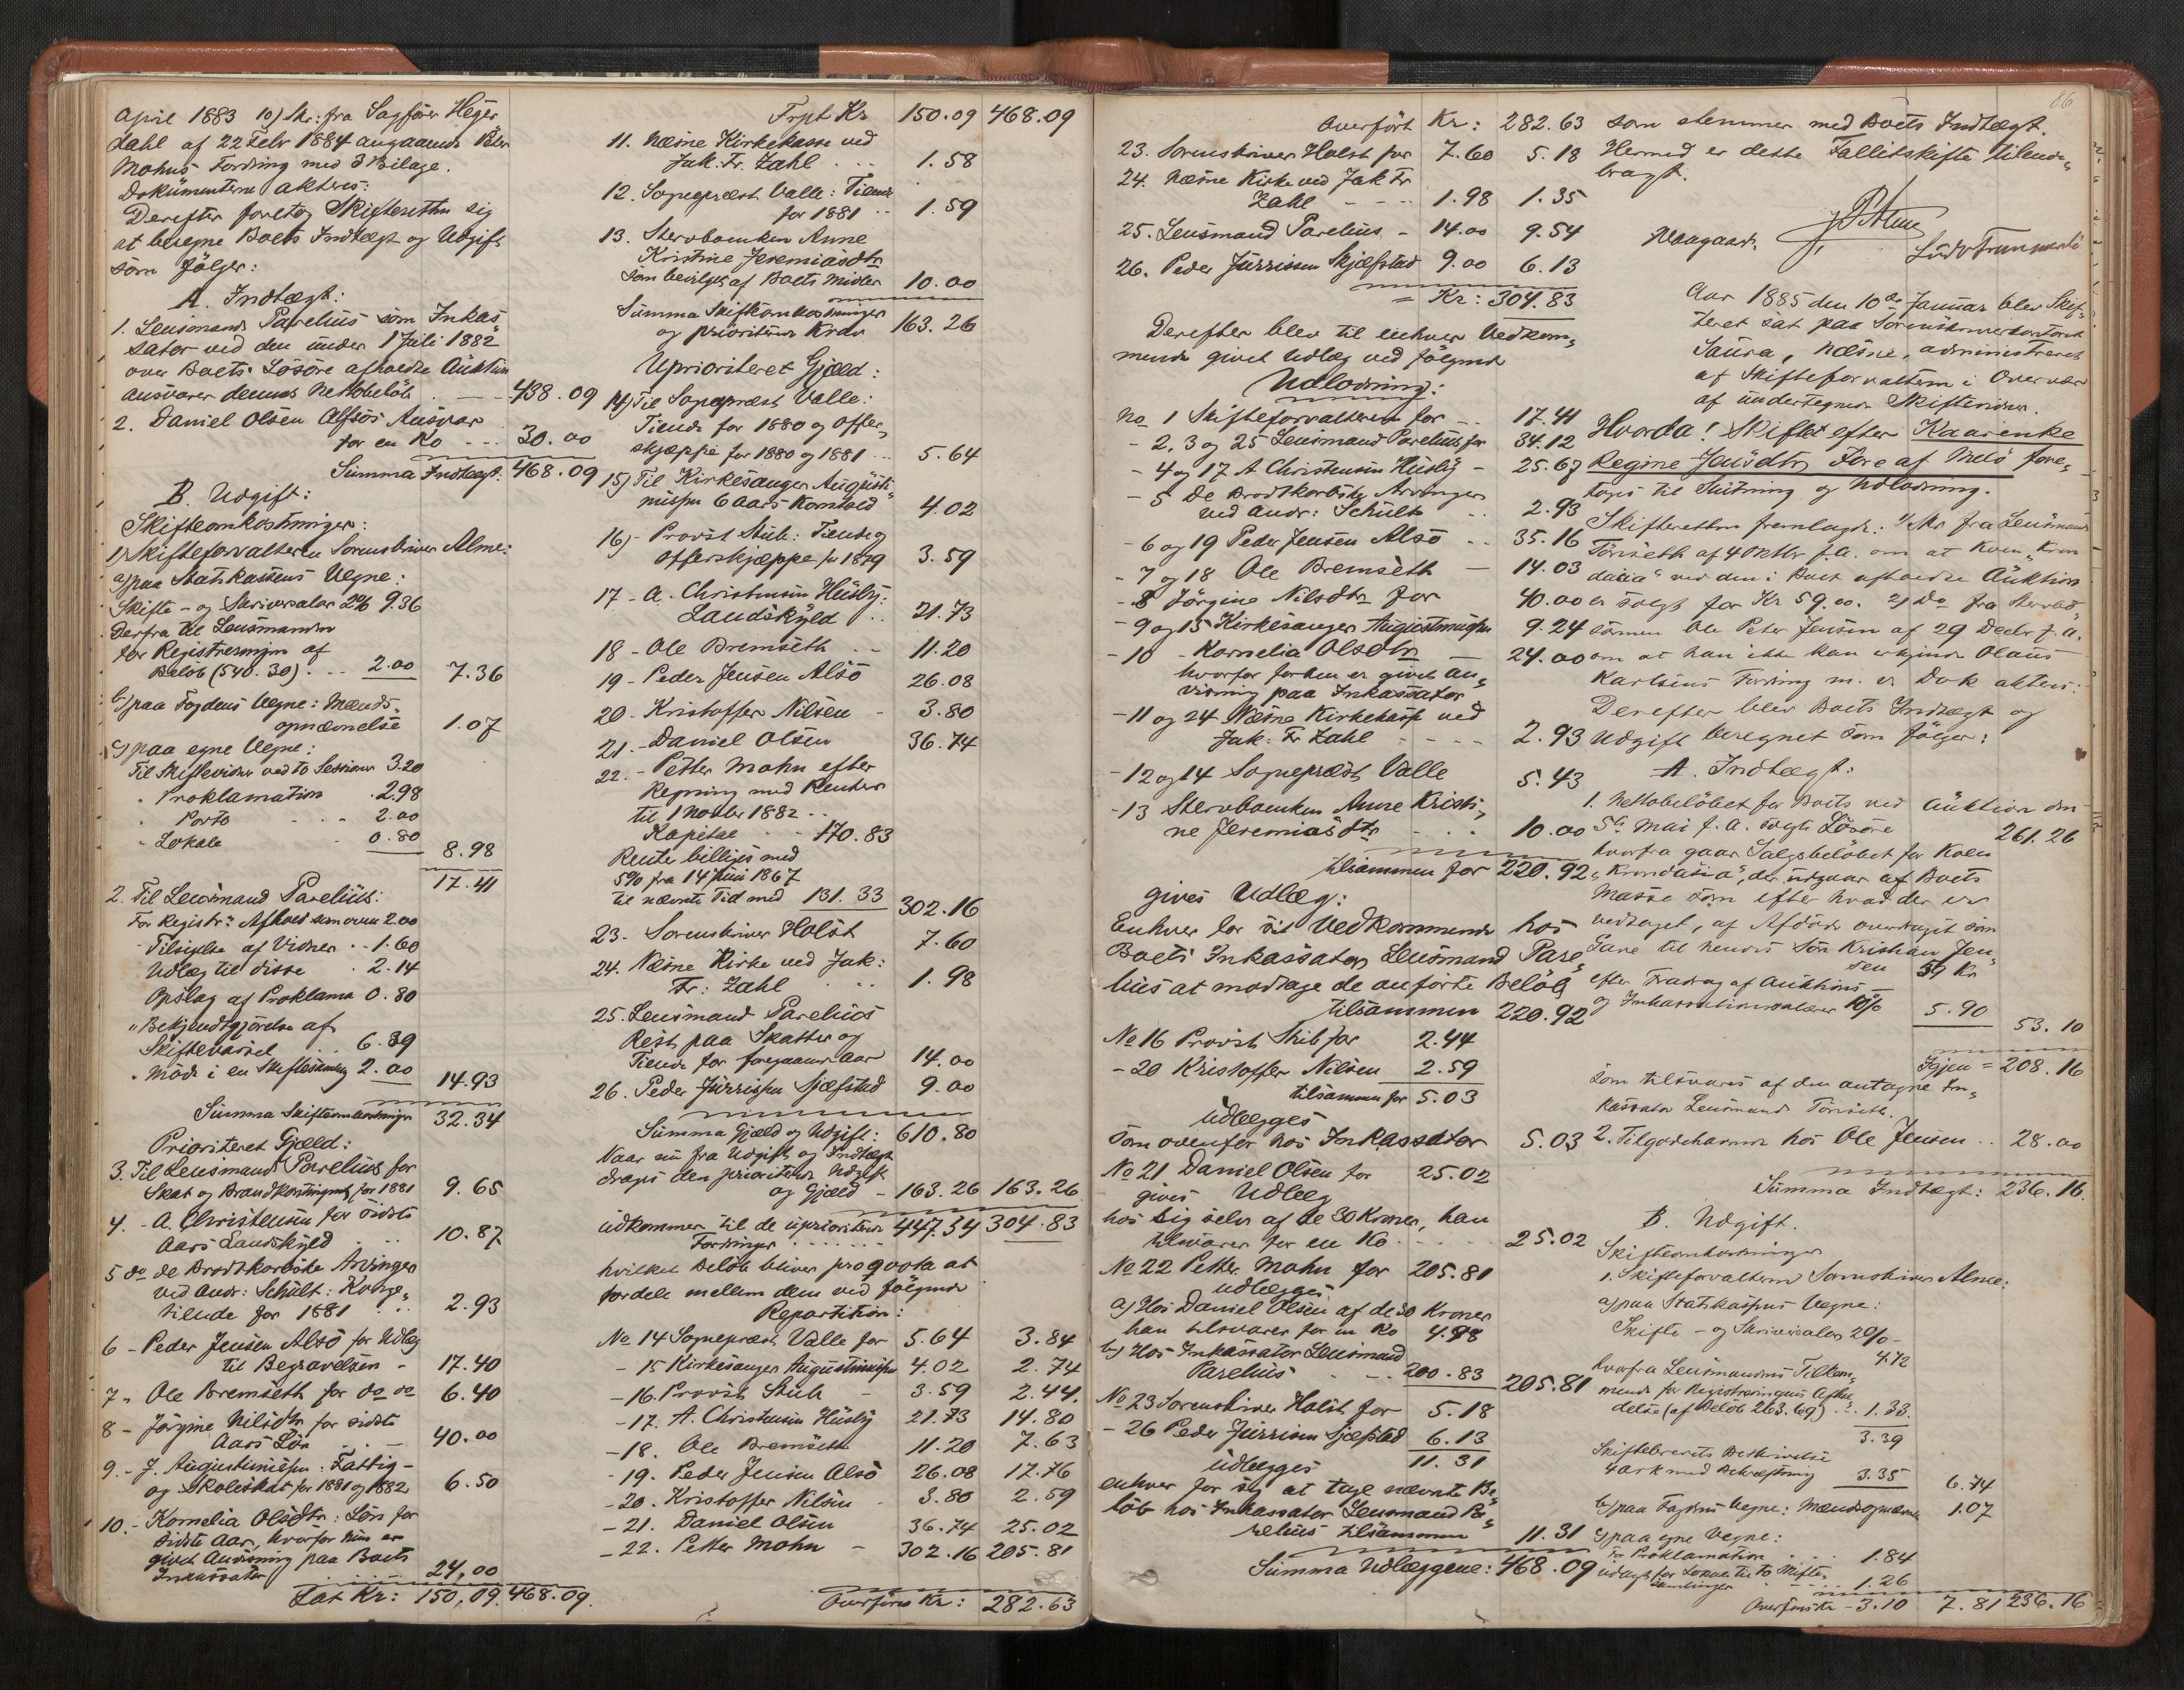 April 1883 10) Skr: fra Sagförer Heger
dahl af 22 Febr 1884 angaaende Peter
Mohns Fordring med 3 Bilage.
Dokumenterne akteres:
Derefter foretog Skifteretten sig
at beregne Boets Indtægt og Udgift
som fölger:
A. Indtægt:
1. Lensmand Parelius som Inkas
sator ved den under 1 Juli 1882
over Boets Lösöre afholdte Auktion
ansvarer dennes Nettobelöb . - - 438.09
2. Daniel Olsen Alsös Ansvar
for en Ko - - - 30.00
Summa Indtægt: 468.09
B. Udgift:
Skifteomkostninger:
1) Skifteforvalteren Sorenskriver Alme:
a) paa Statskassens Vegne:
Skifte- og Skriversalær 2% 9.36
Derfra til Lensmanden
for Registreringen af
Belöb (540.30) . . . 2.00 7.36
b) paa Fogdens Vegne: Mænds-
opnævnelse 1.07
c) paa egne Vegne:
Til Skiftevidner ved to Sessioner 3.20
" Proklamation . 2.98
" Porto . . . 2.00
" Lokale . 0.80 8.98
17.41
2. Til Lensmand Parelius:
For Registr: Afhold som oven 2.00
Tilsigelse af Vidner . . 1.60
Udlæg til disse . 2.14
Opslag af Proklama 0.80
" Bekjendtgjörelse af
Skiftevarsel . . . 6.39
" Möde i en Skiftesamling 2.00 14.93
Summa Skifteomkostninger 32.34
Prioriteret Gjæld:
3. Til Lensmand Parelius for
Skat og Brandkontingent for 1881 9.65
4. - A. Christensen for sidste
Aars Landskyld . . . 10.87
5 do de Brodtkorbske Arvinger
ved Andr: Schult: Konge-
tiende for 1881 . . 2.93
6 - Peder Jensen Alsö for Udlæg
til Begravelsen - 17.40
7 " Ole Bremseth for do do 6.40
8 - Jörgine Nilsdtr for sidste
Aars Lön . . - 40.00
9. - J. Augustinussen: Fattig-
og Skoleskat for 1881 og 1882 6.50
10. - Kornelia Olsdtr: Lön for
sidste Aar, hvorfor hun er
givet Anvisning paa Boets
Inkassator . . . . 24,00
Lat Kr: 150,09. 468.09.
Frpt Kr 150.09 468.09
11. Næsne Kirkekasse ved
Jak. Fr. Zahl . . . 1.58
12. Sogneprest Valle: Tiende
for 1881 . . 1.59
13. Stervboenken Anne
Kristine Jeremiasdtr
som bevilges af Boets Midler 10.00
Summa Skifteomkostninger
og prioriterede Krav 163.26
Uprioriteret Gjæld:
14) Til Sogneprest Valle:
Tiende for 1880 og Offer-
skjæppe for 1880 og 1881 . . 5.64
15) Til Kirkesanger Augusti-
nussen 6 Aars Korntold 4.02
16) - Provst Stub: Tiende og
Offerskjæppe for 1879 3.59
17 - A. Christensen Husby:
Landskyld . . 21.73
18 - Ole Bremseth - - 11.20
19 - Peder Jensen Alsö 26.08
20 - Kristoffer Nilsen - 3.80
21. - Daniel Olsen 36.74
22. - Petter Mohn efter
Regning med Renter
til 1 Novbr 1882 . .
Kapital . . 170.83
Renter billiges med
5% fra 14 Juni 1867
til nævnte Tid med 131.33 302.16
23 - Sorenskriver Holst 7.60
24. Næsne Kirke ved Jak:
Fr: Zahl . . . 1.98
25. Lensmand Parelius
Rest paa Skatter og
Tiende for foregaaende Aar 14.00
26. Peder Jürrissen Sjæfstad 9.00
Summa Gjæld og Udgift: 610.80
Naar nu fra Udgift og Indtægt
drages den prioriterede Udgift
og Gjæld - 163.26 163.26
udkommer til de uprioriterede 447.54 304.83
Fordringer . . . . . .
hvilket Belöb bliver pro qvota at
fordele mellem dem ved fölgende
Repartition:
No 14 Sogneprest Valle for 5.64 3.84
- 15 Kirkesanger Augustinussen 4.02 2.74
- 16. Provst Stub - 3.59 2.44.
- 17. A. Christensen Husby 21.73 14.80
- 18. Ole Bremseth 11.20 7.63
- 19. Peder Jensen Alsö 26.08 17.76
- 20. Kristoffer Nilsen - 3.80 2.59
- 21. Daniel Olsen 36.74 25.02
- 22. Petter Mohn - 302.16 205.81
Overföres Kr: 282.63
Overfört Kr: 282.63
23. Sorenskriver Holst for 7.60 5.18
24. Næsne Kirke ved Jak Fr
Zahl - - - 1.98 1.35
25. Lensmand Parelius - 14.00 9.54
26. Peder Jürrissen Skjæfstad 9.00 6.13
= Kr: 304.83
Derefter blev til enhver Vedkom-
mende givet Udlæg ved fölgende
Udlodning:
No 1 Skifteforvalteren for - - 17.41
- 2, 3 og 25 Lensmand Parelius for 34.12
- 4 og 17 A Christensen Husby - 25.67
- 5 De Brodtkorbske Arvinger
ved Andr: Schult . . 2.93
- 6 og 19 Peder Jensen Alsö . . 35.16
- 7 og 18 Ole Bremseth - 14.03
- 8 Jörgine Nilsdtr for 40.00
- 9 og 15 Kirkesanger Augustinussen 9.24
- 10 - Kornelia Olsdtr 24.00
hvorfor forhen er givet An-
visning paa Inkassator
- 11 og 24 Næsne Kirkekasse ved
Jak: Fr Zahl - - - - 2.93
- 12 og 14 Sogneprest Valle 5.43
- 13 Stervboenken Anne Kristi-
ne Jeremiasdtr - . . 10.00
tilsammen for 220.92
gives Udlæg:
Enhver for sit Vedkommende hos
Boets Inkassator Lensmand Pare-
lius at modtage de anförte Belöb
tilsammen 220.92
No 16 Provst Stub for 2.44
- 20 Kristoffer Nilsen 2.59
tilsammen for 5.03
udlægges
som ovenfor hos Inkassator 5.03
No 21 Daniel Olsen for 25.02
gives Udlæg
hos sig selv af de 30 Kroner, han
tilsvarer for en Ko - - - - 25.02
No 22 Petter Mohn for 205.81
udlægges
a) Hos Daniel Olsen af de 30 Kroner
han tilsvarer for en Ko 4.98
b) Hos Inkassator Lensmand
Parelius . - . . 200.83 205.81
No 23 Sorenskriver Holst for 5.18
- 26 Peder Jürrissen Sjæfstad 6.13
udlægges 11.31
enhver for sig at tage nævnte Be-
löb hos Inkassator Lensmand Pa-
relius tilsammen 11.31
Summa Udlæggene: 468.09
86
som stemmer med Boets Indtægt.
Hermed er dette Fallitskifte tilende-
bragt.
Aar 1885 den 10de Januar blev Skif-
teret sat paa Sorenskriverkontoret
Saura, Næsne, administreret
af Skifteforvalteren i Overvær
af undertegnede Skiftevidner.
Hvorda! Skiftet efter Kaarenke
Regine Jensdtr Fore af Melö fore-
toges til Slutning og Udlodning.
Skifteretten fremlagde: 1) Skr fra Lensmand
Torrseth af 4 Oktbr f.A. om at Koen "Kron
dasia" ved den i Boet afholdte Auktion
er solgt for Kr 59.00. 2) Do fra Stervbo
sönnen Ole Peter Jensen af 29 Decbr f.A.
om at han ikke kan erkjende Olaus
Karlsens Fordring m. v. Dok akteres:
Derefter blev Boets Indtægt og
Udgift beregnet som fölger:
A. Indtægt:
1. Nettobelöbet for Boets ved Auktion den
5te Mai f. A. solgte Lösöre 261.26
hvorfra gaar Salgsbelöbet for Koen
"Krondasia", der udgaar af Boets
Masse som efter hvad der er
vedtaget, af Afdöde overdraget som
Gave til hendes Sön Kristian Jen-
sen 59 Kr
efter Fradrag af Auktions-
og Inkassationssalær 10% 5.90 53.10
Igjen = 208.16
som tilsvares af den antagne In-
kassator Lensmand Torrseth.
2. Tilgodehavende hos Ole Jensen . . 28.00
Summa Indtægt: 236.16.
B. Udgift.
Skifteomkostninger
1. Skifteforvalteren Sorenskriver Alme:
a) paa Statskassens Vegne:
Skifte- og Skriversalær 2% -
4.72
hvorfra Lensmandens Tilkom-
mende for Registreringens Afhol-
delse (af Belöb 263.69) . . 1.33.
3.39
Skiftebrevets Beskrivelse
4 Ark med Bekræftning 3.35 6.74
b) paa Fogdens Vegne: Mændsopnævnelse 1.07
c) paa egne Vegne:
For Proklamation . . . . 1.84
Udlagt for Lokale til to Skifte-
samlinger . - - - - 1.26
Overföres Kr - 3.10 7.81 236.16